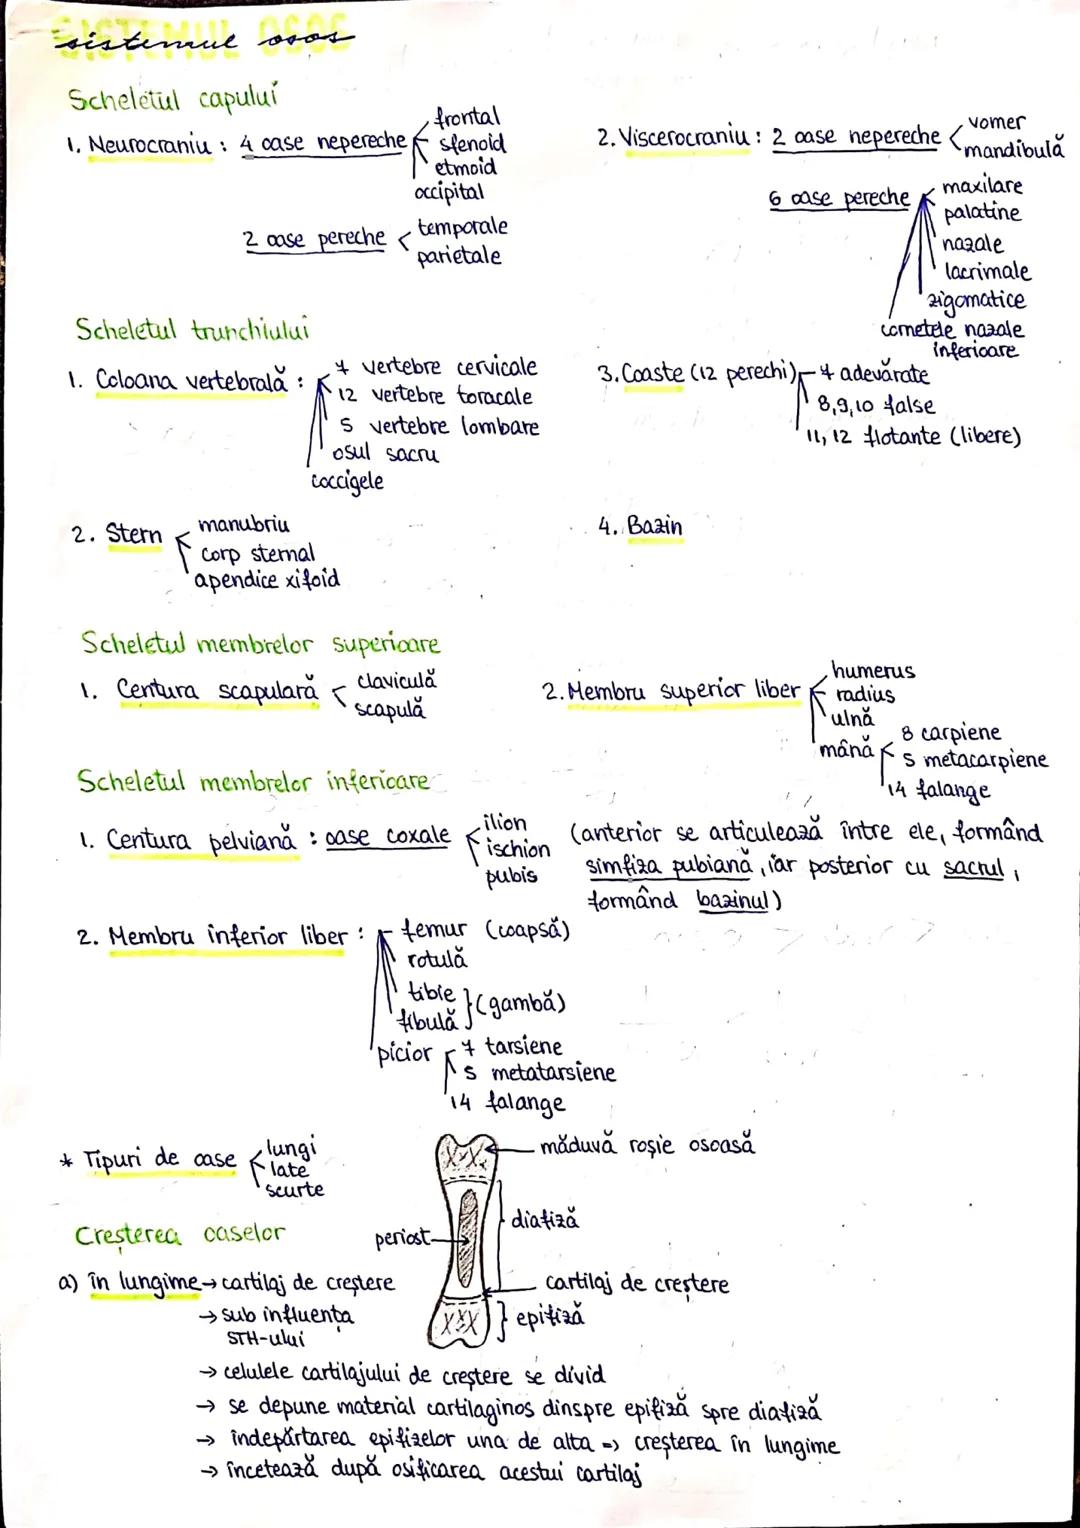 SISTEMUL OSOS
sistemul osos
Scheletul capului
1. Neurocraniu : 4 oase nepereche
frontal
sfenoid
etmoid
occipital
2 oase pereche
temporale
parietale
2. Viscerocraniu : 2 oase nepereche
vomer
mandibulă
6 oase pereche
maxilare
palatine
nazale
lacrimale
zigomatice
cornetele nazale
inferioare
Scheletul trunchiului
1. Coloana vertebrală :
7 vertebre cervicale
12 vertebre toracale
5 vertebre lombare
osul sacru
coccigele
3. Coaste (12 perechi)
7 adevărate
8,9,10 false
11, 12 flotante (libere)
2. Stern
manubriu
corp sternal
apendice xifoid
4. Bazin
Scheletul membrelor superioare
1. Centura scapulară
claviculă
scapulă
2. Membru superior liber
humerus
radius
ulnă
mână
8 carpiene
5 metacarpiene
14 falange
Scheletul membrelor inferioare
1. Centura pelviană : oase coxale
ilion
ischion
pubis
(anterior se articulează între ele, formând
simfiza pubiană, iar posterior cu sacrul,
formând bazinul)
2. Membru inferior liber :
femur (coapsă)
rotulă
tibie
fibulă } (gambă)
picior
7 tarsiene
5 metatarsiene
14 falange
* Tipuri de oase
lungi
late
scurte
măduvă roșie osoasă
diafiză
periost
cartilaj de creștere
epifiză
Creșterea oaselor
a) în lungime → cartilaj de creștere
→ sub influența
STH-ului
→ celulele cartilajului de creștere se divid
→ se depune material cartilaginos dinspre epifiză spre diafiză
→ îndepărtarea epifizelor una de alta => creșterea în lungime
→ încetează după osificarea acestui cartilaj